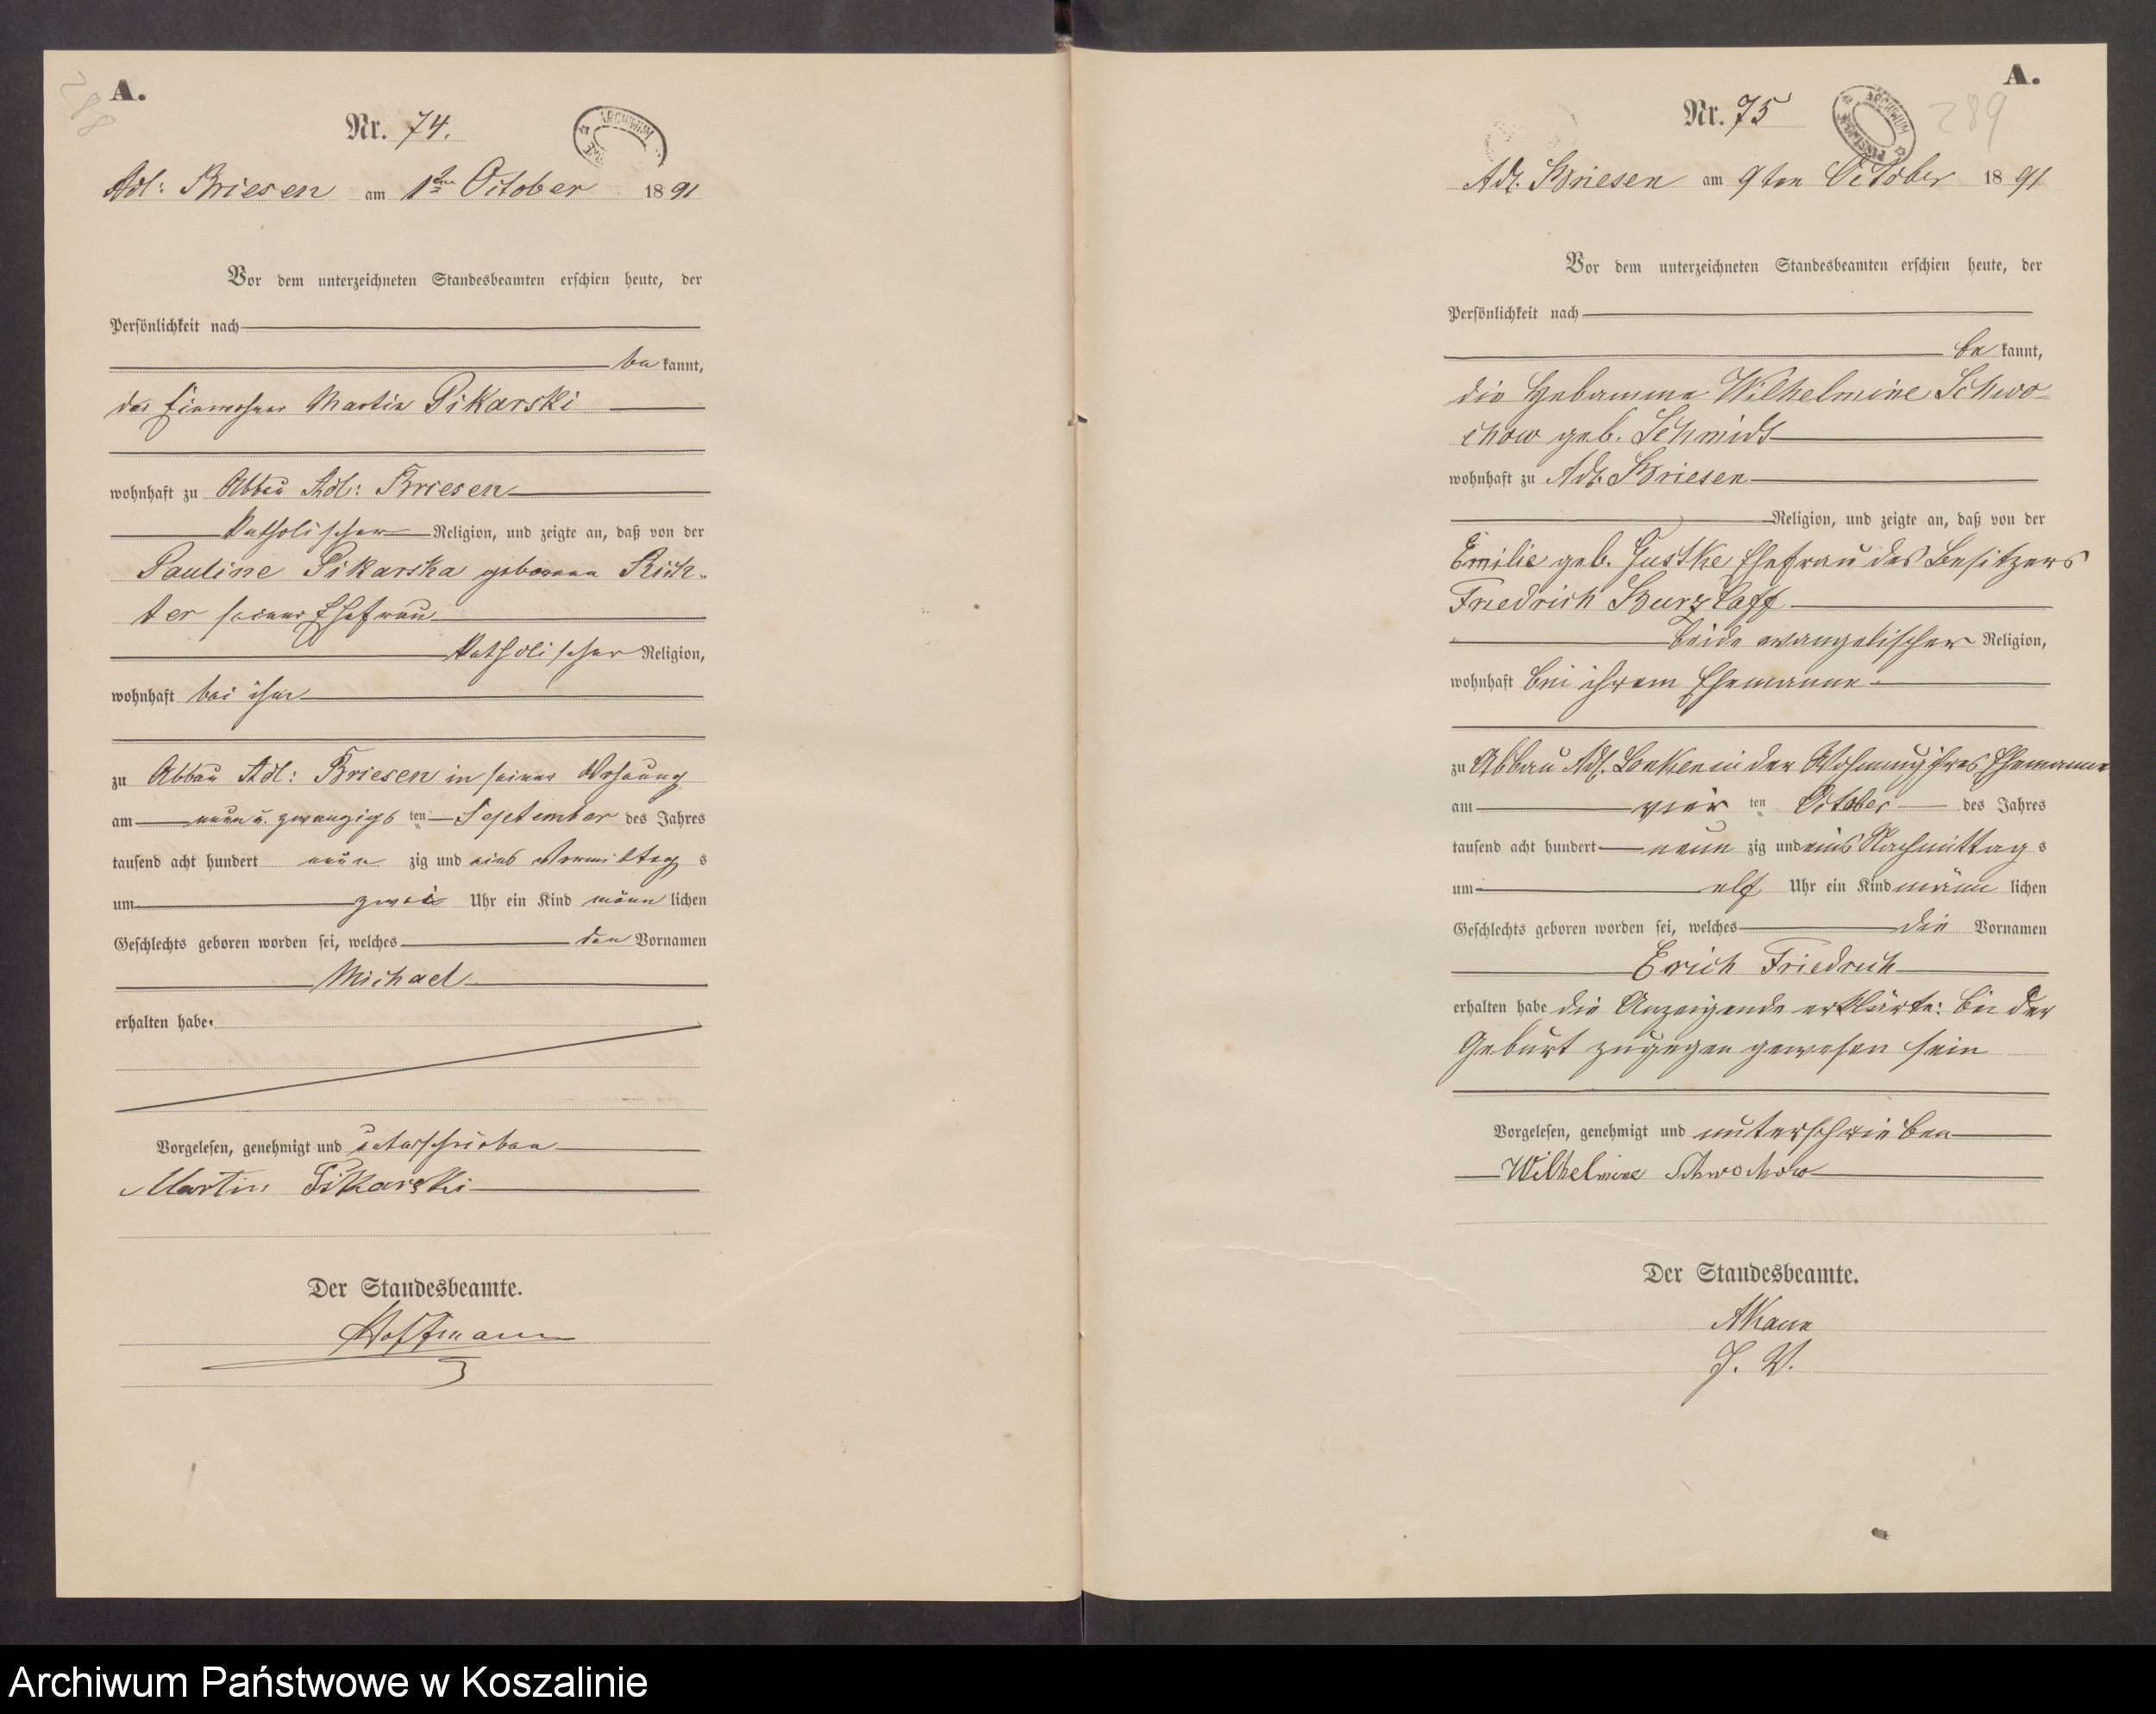 288
A.
Nr. 74.
ARCHIWUM
Adl: Briesen am 1ten October 1891
Vor dem unterzeichneten Standesbeamten erschien heute, der
Persönlichkeit nach
be kannt,
der Einwohner Martin Pikarski
wohnhaft zu Abbau Adl: Briesen
katholischer Religion, und zeigte an, daß von der
Pauline Pikarska geborene Rich-
ter seiner Ehefrau
katholischer Religion,
wohnhaft bei ihm
zu Abbau Adl: Briesen in seiner Wohnung
am neun u. zwanzigs ten September des Jahres
tausend acht hundert neun zig und eins Vormittag s
um zwei Uhr ein Kind männ lichen
Geschlechts geboren worden sei, welches den Vornamen
Michael
erhalten habe.
Vorgelesen, genehmigt und unterschrieben
Martin Pikarski
Der Standesbeamte.
Hoffmann
A.
Nr. 75
ARCHIWUM
289
Adl. Briesen am 9ten October 1891
Vor dem unterzeichneten Standesbeamten erschien heute, der
Persönlichkeit nach
be kannt,
die Hebamme Wilhelmine Schwo-
chow geb. Schmidt
wohnhaft zu Adl. Briesen
Religion, und zeigte an, daß von der
Emilie geb. Gustke Ehefrau des Besitzers
Friedrich Burzlaff
beide evangelischer Religion,
wohnhaft bei ihrem Ehemanne
zu Abbau Adl. in der Wohnung ihres Ehemanne
am vier ten October des Jahres
tausend acht hundert neun zig und eins Nachmittag s
um elf Uhr ein Kind männ lichen
Geschlechts geboren worden sei, welches die Vornamen
Erich Friedrich
erhalten habe die Anzeigende erklärte: bei der
Geburt zugegen gewesen sein
Vorgelesen, genehmigt und unterschrieben
Wilhelmine Schwochow
Der Standesbeamte.
J. V.
Archiwum Państwowe w Koszalinie